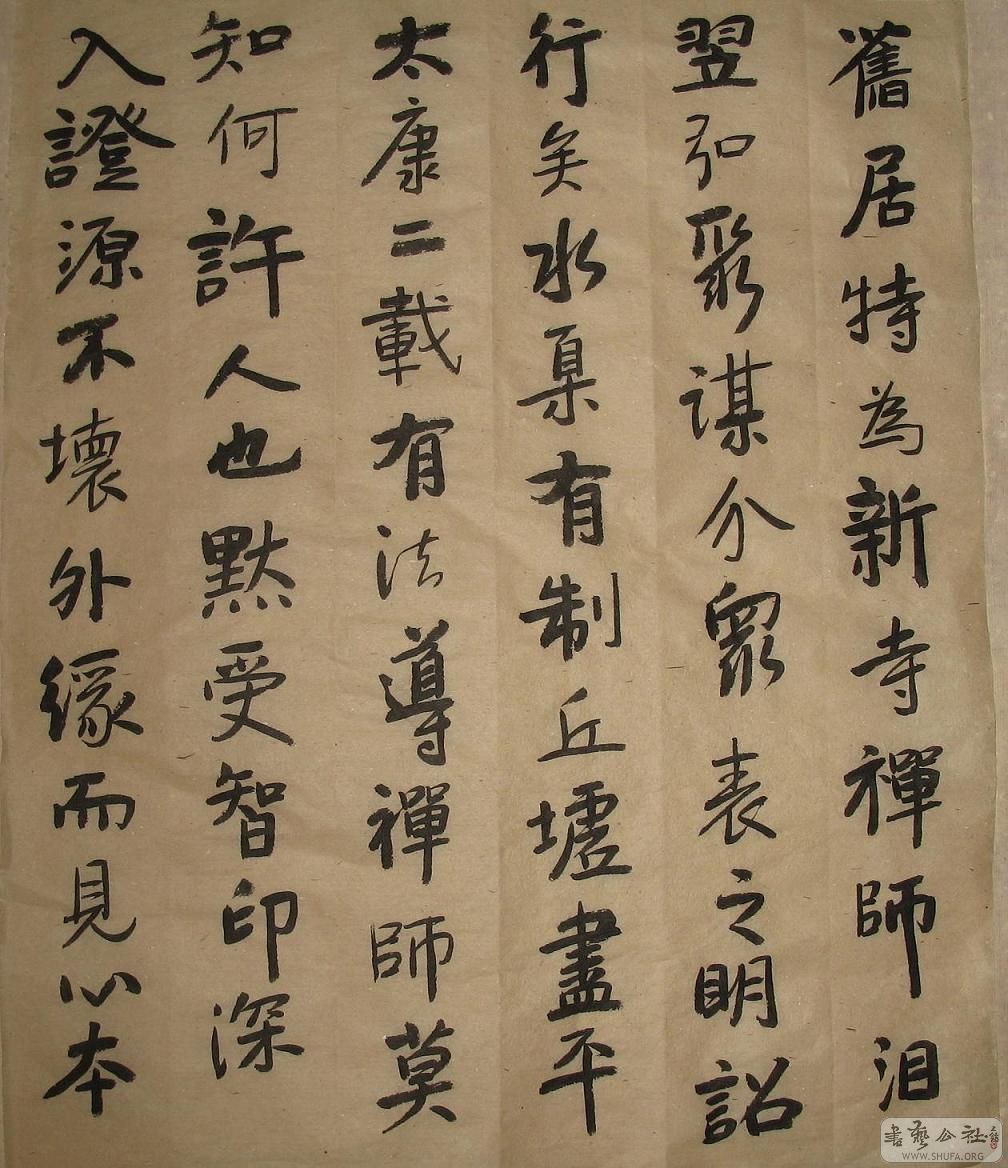 舊居特為新寺禪師洎
翌弘聚謀介眾表之明詔
行矣水臬有制丘墟盡平
太康二載有法導禪師莫
知何許人也默受智印深
入證源不壞外緣而見心本
書藝公社
WWW.SHUFA.ORG